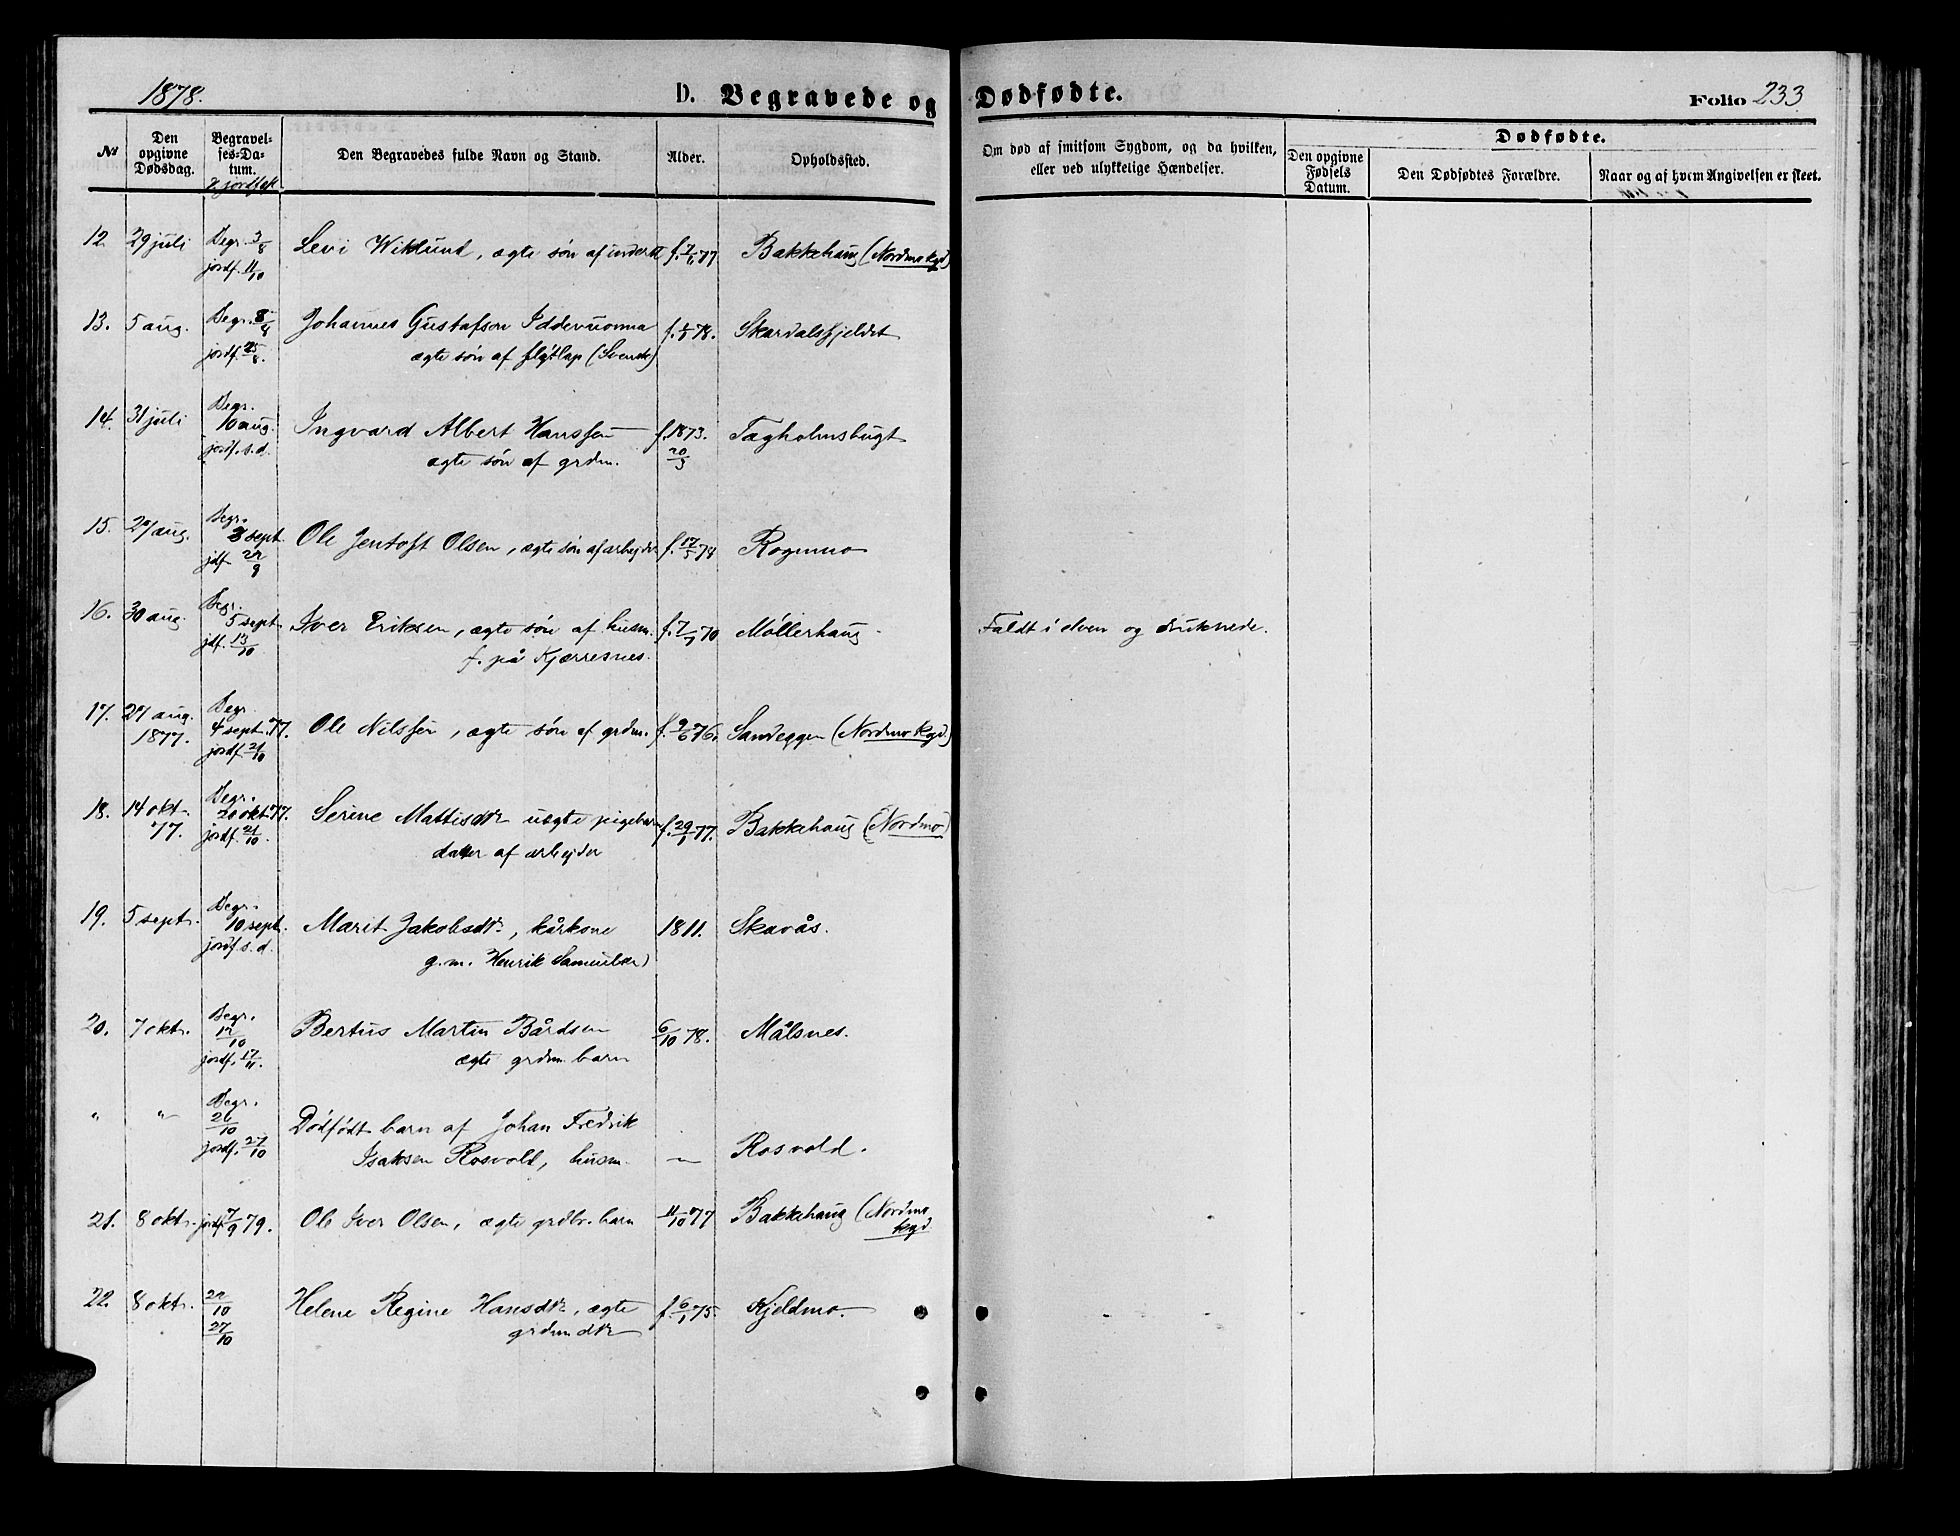 1878. D. Begravede og Dødfødte. Folio 233
No Den opgivne Dødsdag. Begravelses-Datum. & jordfest. Den Begravedes fulde Navn og Stand. Alder. Opholdssted. Om død af smitsom Sygdom, og da hvilken, eller ved ulykkelige Hændelser. Dødfødte. Den opgivne Fødsels Datum. Den Dødfødtes Forældre. Naar og af hvem Angivelsen er skeet.
12. 29 juli Begr. 3/8 Levi Wiklund, ægte søn af f. 77 Bakkehaug (Nordmo kgd)
jordf. 11/10
13. 5 aug. Begr. 8/8 Johannes Gustafson Iddevuoma f. 78. Skardalsfjeldet
jordf. 25/8. ægte søn af flytlap (Svensk)
14. 31 juli Begr. 10 aug. Ingvard Albert Hanssen f. 1873. Tagholmsbugt
jordf. s.d. ægte søn af grdm. 20/3
15. 27 aug. Begr. 3 sept. Ole Jentoft Olsen, ægte søn af arbejder f. 17/5 78 Rognmo
jdf. 22/9
16. 30 aug. Begr. 5 sept. Iver Eriksen, ægte søn af husm. f. 70 Møllerhaug. Faldt i elven og druknede.
jdf. 13/10 f. på Kjerresnes.
17. 27 aug. 1877. Begr. 4 sept. 77. Ole Nilssen, ægte søn af grdm. f. 9/6 76. Sandeggen (Nordmo kgd.)
jordf. 21/10
18. 14 okt. 77. Begr. 20 okt 77. Serine Mattisdtr uægte pigebarn f. 29/1 77. Bakkehaug (Nordmo)
jordf. 21/10. datter af arbejder
19. 5 sept. Begr. 10 sept. Marit Jakobsdtr, kårkone 1811. Skavås.
jordf s. d. g. m. Henrik
20. 7 okt. Begr. 12/10 Bertus Martin Bårdsen 6/10 78. Målsnes.
jordf. 17/11. ægte grdm. barn
" " Begr. 26/10 Dødfødt barn af Johan Fredrik
jordf. 27/10 Isaksen Rosvold, husm. — Rosvold.
21. 8 okt. jordf 7/9 79. Ole Iver Olsen, ægte grdbr. barn 11/10 77 Bakkehaug (Nordmo kgd.
22. 8 okt. 22/10 Helene Regine Hansdtr, ægte f. 6/1 75. Kjeldmo.
27/10 grdm. dtr